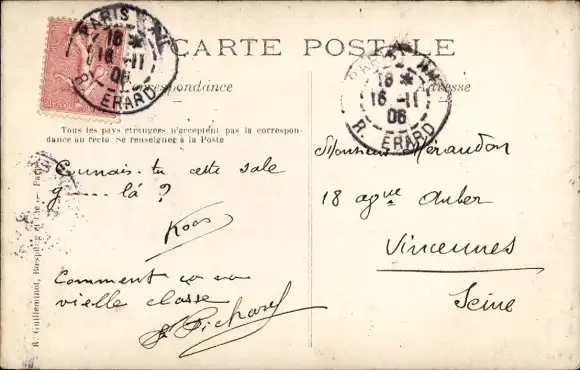 CARTE POSTALE
Correspondance
Adresse
PARIS
18
16 -11
06
R. ERARD
PARIS
18
16 -11
06
R. ERARD
Tous les pays étrangers n'acceptent pas la correspon-
dance au recto Se renseigner à la Poste
Cunais-tu cette sale
g.... là ?
Comment ça va
vielle classe
Pichard
Monsieur Méraudon
18 ague Auber
Vincennes
Seine
R. Guilleminot, Bœspflug et Cie. — Paris